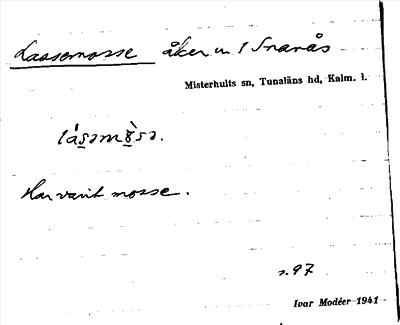 Lassemosse åker u. 1 Snarås
Misterhults sn, Tunaläns hd, Kalm. l.
Har varit mosse.
s. 97
Ivar Modéer 1941